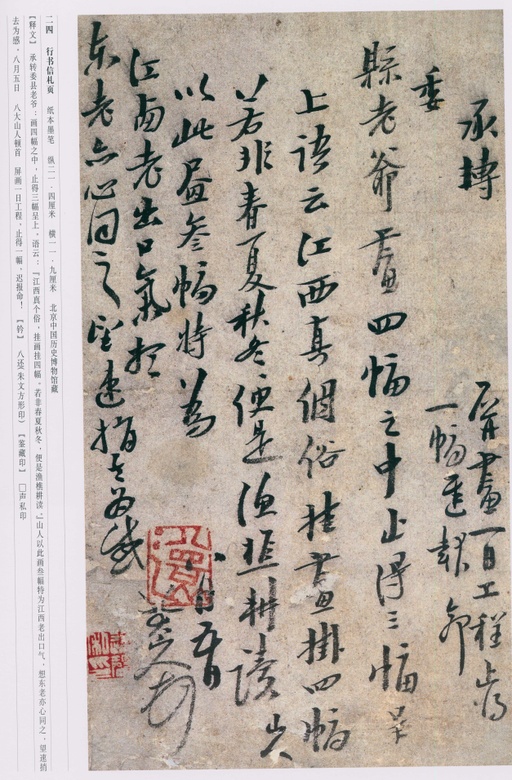 承转
委
縣老爺畫四幅之中止得三幅呈
上語云江西真個俗挂畫掛四幅
若非春夏秋冬便是漁樵耕讀山人
以此畫叁幅特為
江西老出口氣想
東老亦心同之望速捎去为感
八月五日
八大山人頓首
屏畫一日工程止得
一幅遲報命
二四　行书信札页　纸本墨笔　纵二一·四厘米　横一一·九厘米　北京中国历史博物馆藏
【释文】　承转委县老爷：画四幅之中，止得三幅呈上。语云：『江西真个俗，挂画挂四幅。若非春夏秋冬，便是渔樵耕读。』山人以此画叁幅特为江西老出口气，想东老亦心同之，望速捎
去为感。八月五日　八大山人顿首　屏画一日工程，止得一幅，迟报命！　【钤】　八还（朱文方形印）　【鉴藏印】　□声私印